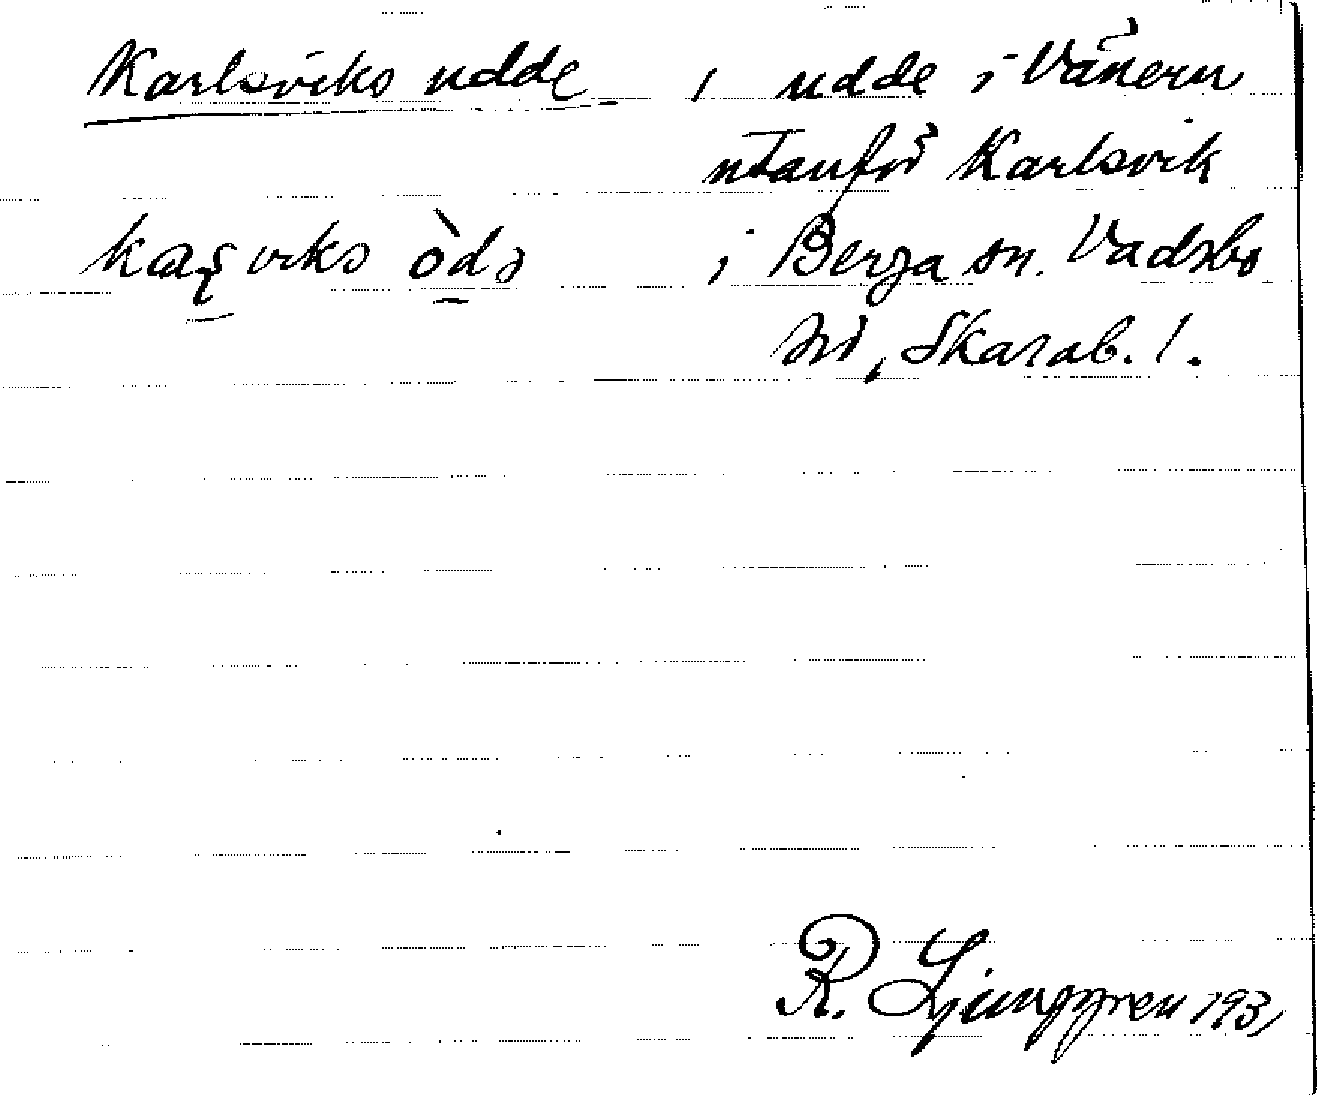 Karlsviks udde , udde i Vänern
utanför Karlsvik
kaʂviks òdə i Berga sn. Vadsbo
hd, Skarab. l.
R. Ljunggren 1931